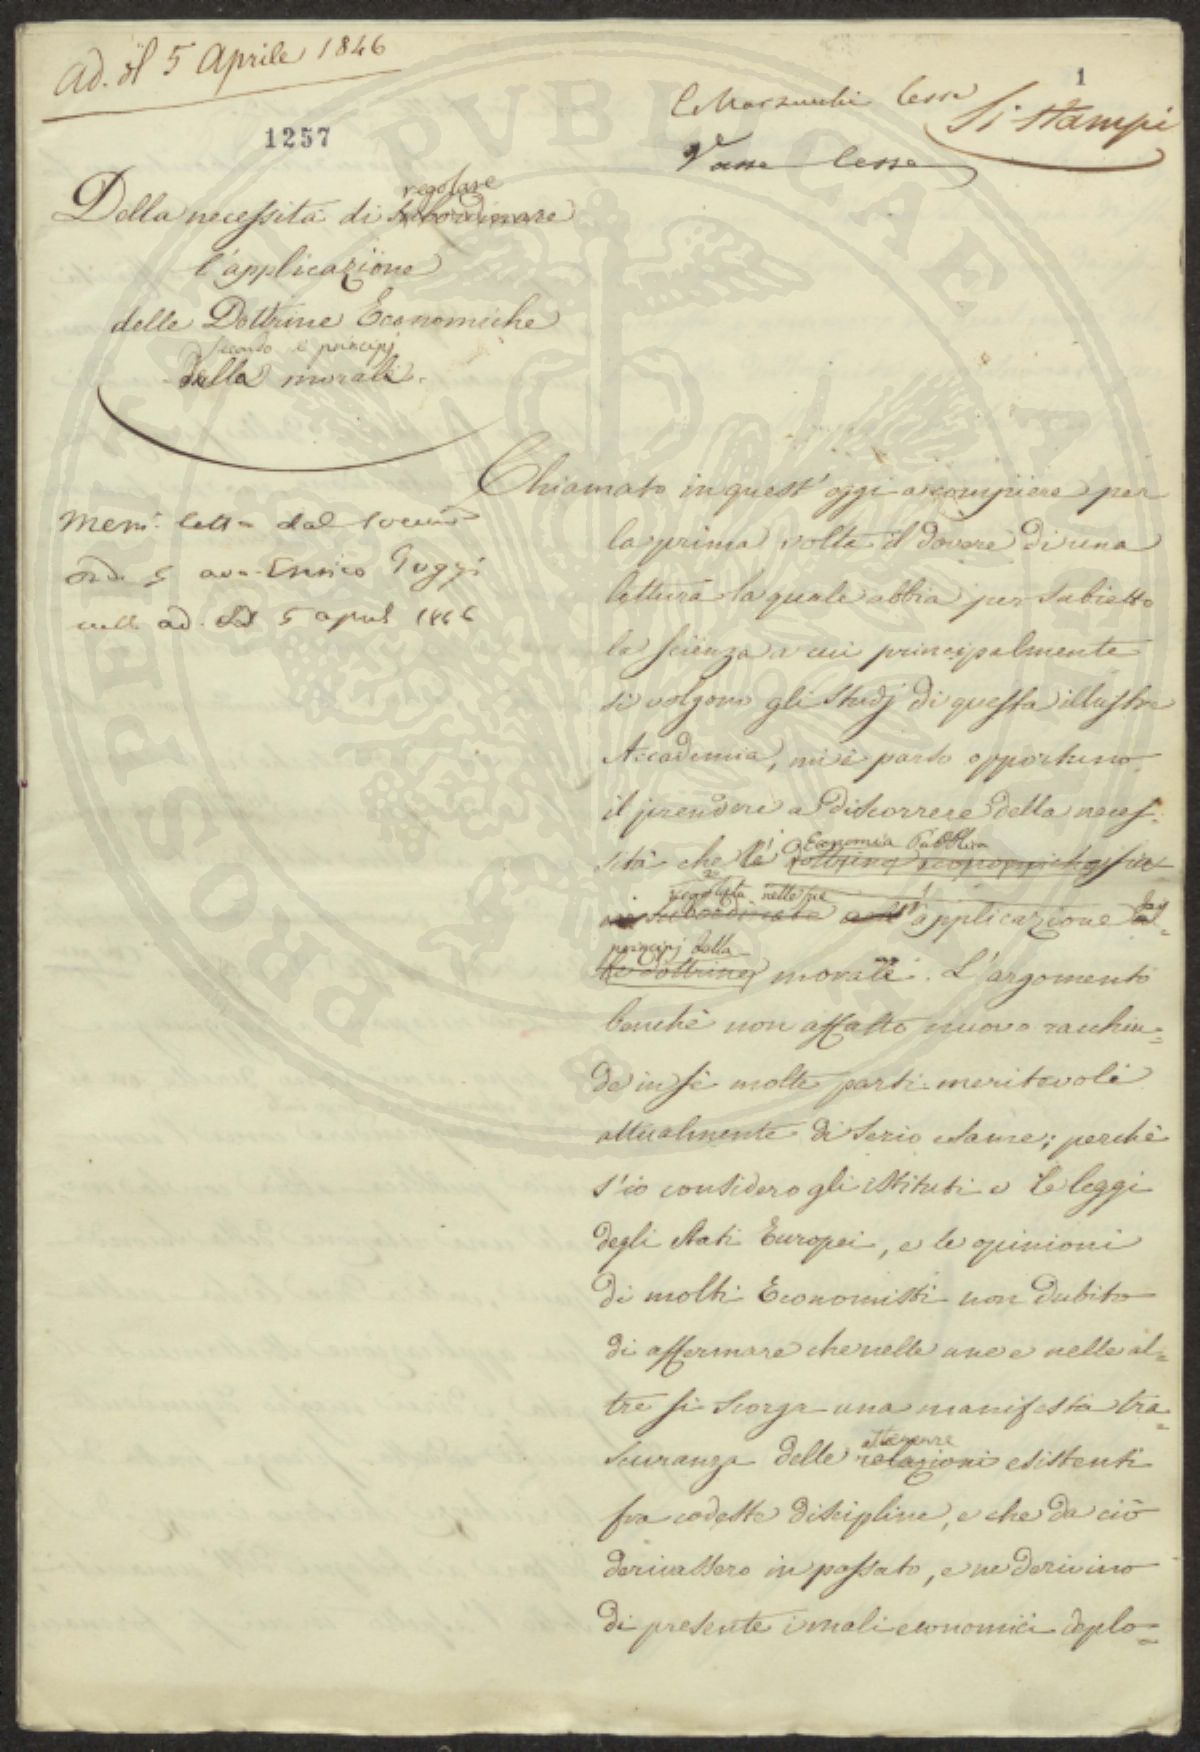 Ad. del 5 Aprile 1846
1
1257
C. Marzucchi Cens.e
Si stampi
Cens.e
Della necessità di subordinare regolare
l'applicazione
delle Dottrine Economiche
secondo i principj
della morale.
Mem.a letta dal Socio
ord.o Avv. Enrico Poggi
nell'ad. del 5 april 1846
Chiamato in quest'oggi a compiere per
la prima volta il dovere di una
lettura la quale abbia per subietto
la scienza a cui principalmente
si volgono gli studj di questa illustre
Accademia, mi è parso opportuno
il prendere a discorrere della neces-
sità che l' Economia Pubblica dottrine economiche sia
regolata nelle sue subordinata all'applicazione dai
principj della
le dottrine morale. L'argomento
benchè non affatto nuovo racchiu=
de in sè molte parti meritevoli
attualmente di serio esame; perchè
s'io considero gli istituti e le leggi
degli Stati Europei, e le opinioni
di molti Economisti non dubito
di affermare che nelle une e nelle al=
tre si scorge una manifesta tra=
scuranza delle relazioni attenenze esistenti
fra codeste discipline, e che da ciò
derivassero in passato, e ne derivino
di presente i mali economici deplo=
PRINCIPIS REI PVBLICAE